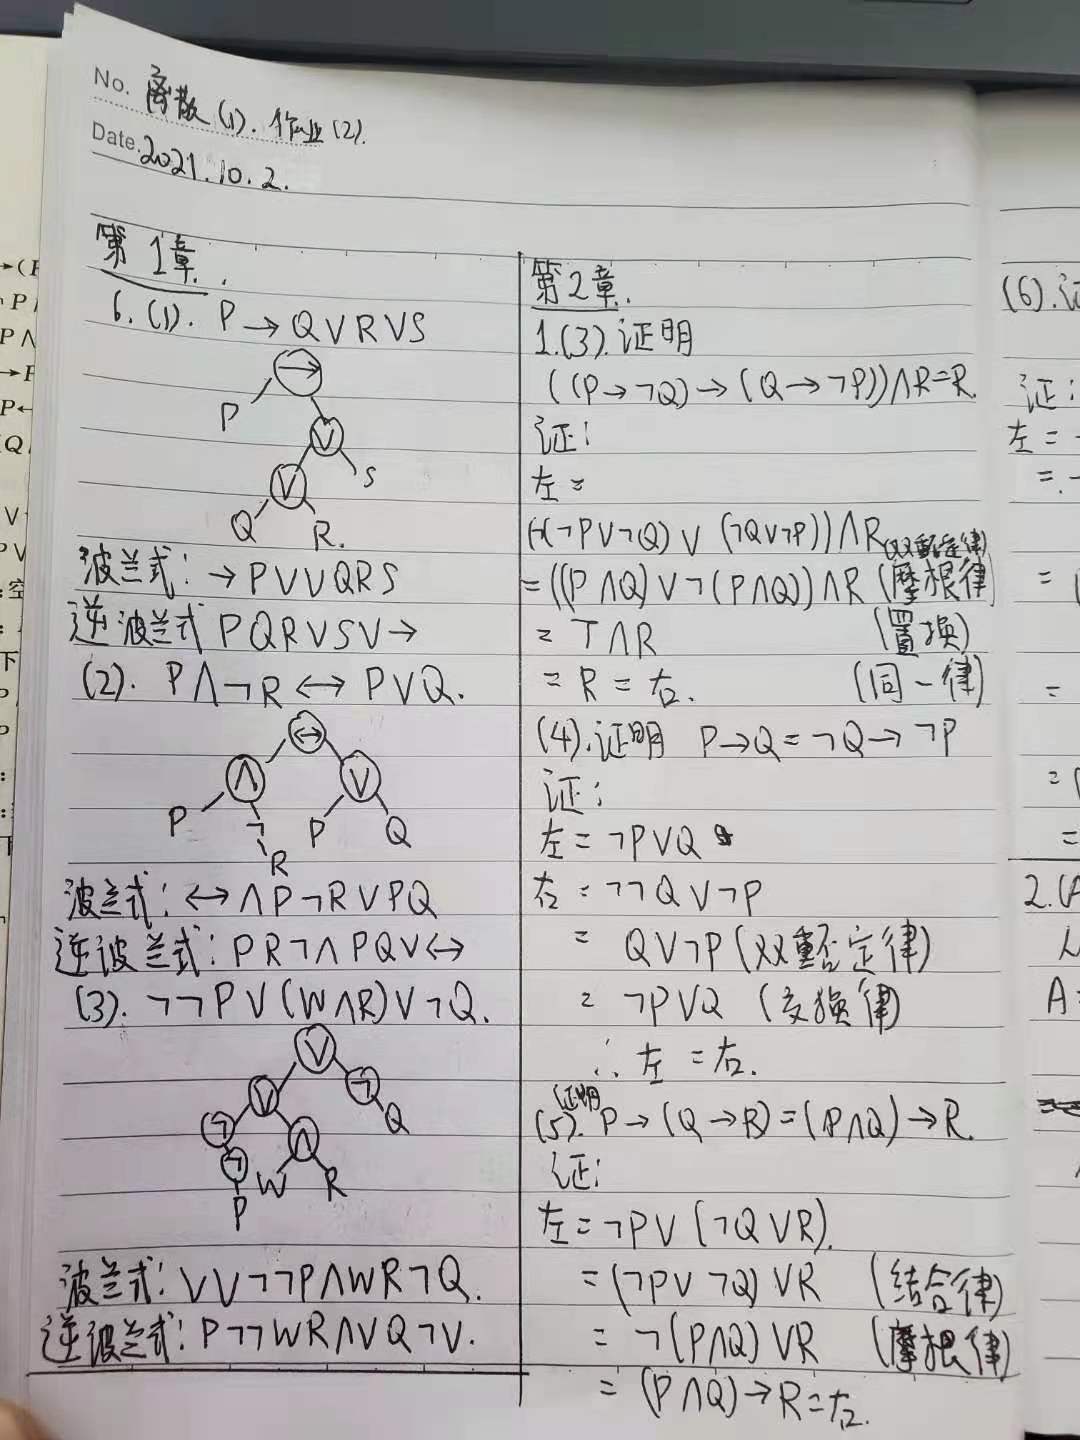 No. 离散(1).作业(2).
Date. 2021.10.2.
第1章.
6.(1). P→Q∨R∨S
→
P
∨
∨
S
Q
R.
波兰式: →P∨∨QRS
逆波兰式 PQR∨S∨→
(2). P∧¬R↔P∨Q.
↔
∧
∨
P
¬
P
Q
R
波兰式: ↔∧P¬R∨PQ
逆波兰式: PR¬∧PQ∨↔
(3). ¬¬P∨(W∧R)∨¬Q.
∨
∨
¬
¬
∧
Q
¬
W
R
P
波兰式: ∨∨¬¬P∧WR¬Q.
逆波兰式: P¬¬WR∧∨Q¬∨.
第2章.
1.(3).证明
((P→¬Q)→(Q→¬P))∧R=R.
证:
左=
(¬(¬P∨¬Q)∨(¬Q∨¬P))∧R(双重否定律)
=((P∧Q)∨¬(P∧Q))∧R(摩根律)
=T∧R (置换)
=R=右. (同一律)
(4).证明 P→Q=¬Q→¬P
证:
左=¬P∨Q
右=¬¬Q∨¬P
= Q∨¬P(双重否定律)
= ¬P∨Q (交换律)
∴左=右.
(5).证明 P→(Q→R)=(P∧Q)→R.
证:
左=¬P∨(¬Q∨R).
=(¬P∨¬Q)∨R (结合律)
= ¬(P∧Q)∨R (摩根律)
= (P∧Q)→R=右.
(6).证
证:
左=
=
=
=
=
=
2.
A